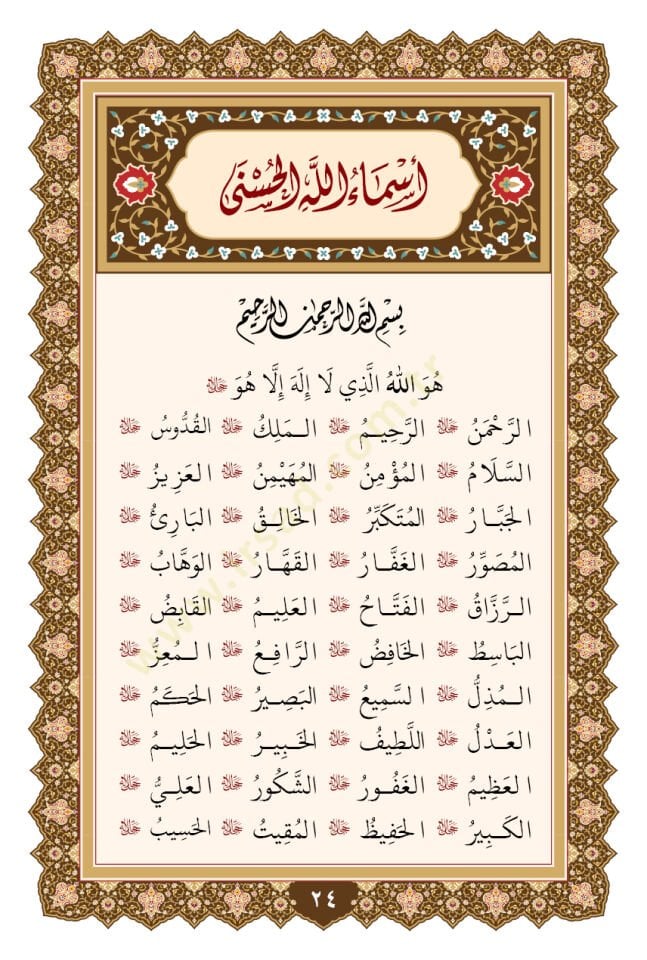 أَسْمَاءُ اللَّهِ الْحُسْنَى
بِسْمِ اللَّهِ الرَّحْمٰنِ الرَّحِيمِ
هُوَ اللهُ الَّذِي لَا إِلَهَ إِلَّا هُوَ ﷻ
الرَّحْمَنُ ﷻ الرَّحِيمُ ﷻ المَلِكُ ﷻ القُدُّوسُ ﷻ
السَّلَامُ ﷻ المُؤْمِنُ ﷻ المُهَيْمِنُ ﷻ العَزِيزُ ﷻ
الجَبَّارُ ﷻ المُتَكَبِّرُ ﷻ الخَالِقُ ﷻ البَارِئُ ﷻ
المُصَوِّرُ ﷻ الغَفَّارُ ﷻ القَهَّارُ ﷻ الوَهَّابُ ﷻ
الرَّزَّاقُ ﷻ الفَتَّاحُ ﷻ العَلِيمُ ﷻ القَابِضُ ﷻ
البَاسِطُ ﷻ الخَافِضُ ﷻ الرَّافِعُ ﷻ المُعِزُّ ﷻ
المُذِلُّ ﷻ السَّمِيعُ ﷻ البَصِيرُ ﷻ الحَكَمُ ﷻ
العَدْلُ ﷻ اللَّطِيفُ ﷻ الخَبِيرُ ﷻ الحَلِيمُ ﷻ
العَظِيمُ ﷻ الغَفُورُ ﷻ الشَّكُورُ ﷻ العَلِيُّ ﷻ
الكَبِيرُ ﷻ الحَفِيظُ ﷻ المُقِيتُ ﷻ الحَسِيبُ ﷻ
٢٤
www.irsad.com.tr